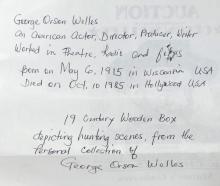 George Orson Welles
an American Actor, Director, Producer, Writer
Worked in Theatre, Radio and films
Born on May 6, 1915 in Wisconsin USA
Died on Oct, 10 1985 in Hollywood USA
19 Century Wooden Box
depicting hunting scenes, from the
Personal Collection of
George Orson Welles